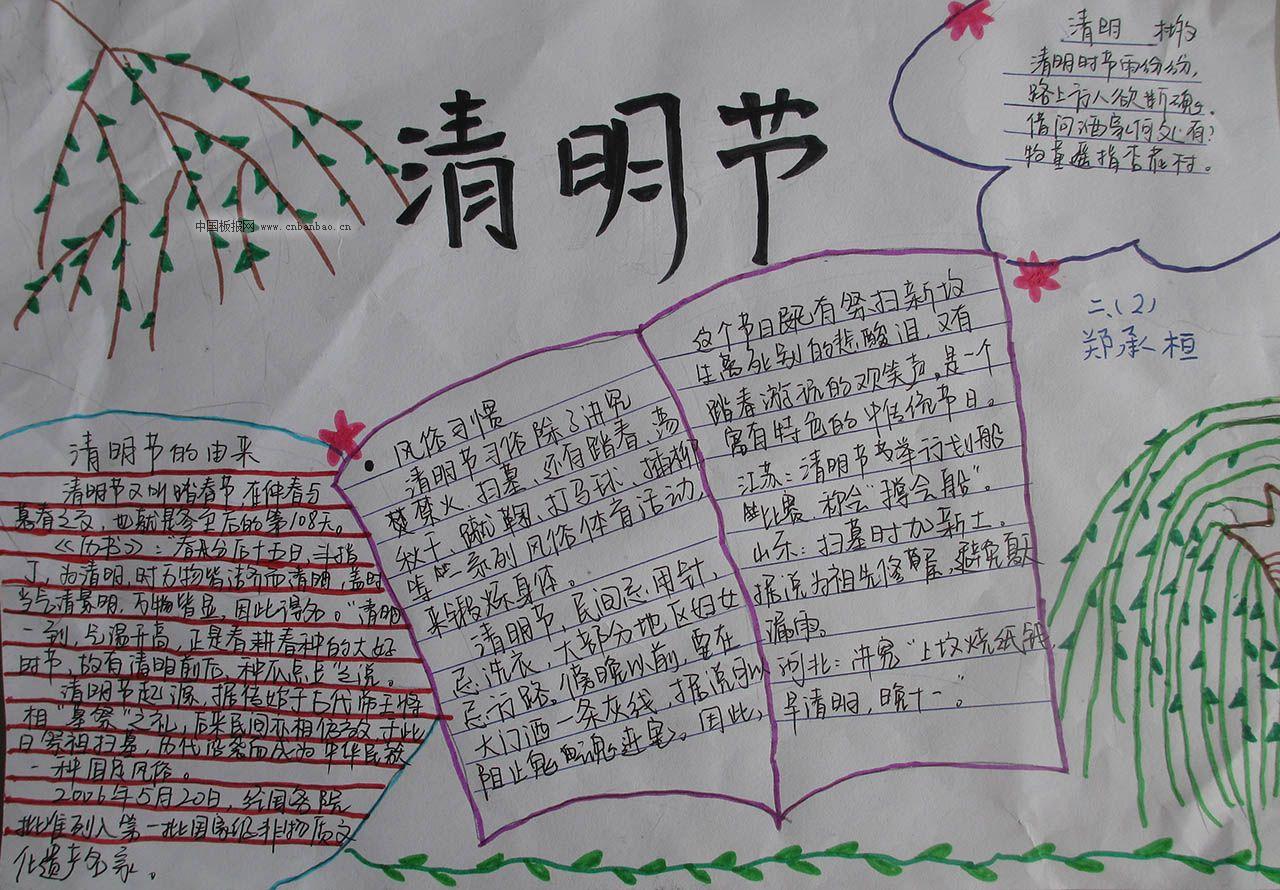 清明节
中国板报网 www.cnbanbao.cn
清明 杜牧
清明时节雨份份,
路上行人欲断魂。
借问酒家何处有?
牧童遥指杏花村。
二、(2)
郑承桓
清明节的由来
清明节又叫踏春节,在仲春与
暮春之交,也就是冬至后的第108天。
《历书》:"春分后十五日,斗指
丁,为清明,时万物皆洁齐而清明,盖时
当气清景明,万物皆显,因此得名。"清明
一到,气温升高,正是春耕春种的大好
时节,故有"清明前后,种瓜点豆"之说。
清明节起源,据传始于古代帝王将
相"墓祭"之礼,后来民间亦相仿效,于此
日祭祖扫墓,历代沿袭而成为中华民族
一种固定风俗。
2006年5月20日,经国务院
批准列入第一批国家级非物质文
化遗产名录。
风俗习惯
清明节习俗除了讲究
禁火、扫墓,还有踏春、荡
秋千、蹴鞠、打马球、插柳
等一系列风俗体育活动,
来锻炼身体。
清明节,民间忌用针,
忌洗衣,大部分地区妇女
忌行路。傍晚以前,要在
大门洒一条灰线,据说可以
阻止鬼魂进宅。因此,
这个节日既有祭扫新坟
生离死别的悲酸泪,又有
踏春游玩的欢笑声。是一个
富有特色的中传统节日。
江苏:清明节书举行划船
比赛,称会"撑会船"。
山东:扫墓时加新土。
据说为祖先修屋,避免夏天
漏雨。
河北:讲究"上坟烧纸钱
早清明,晚十一"。